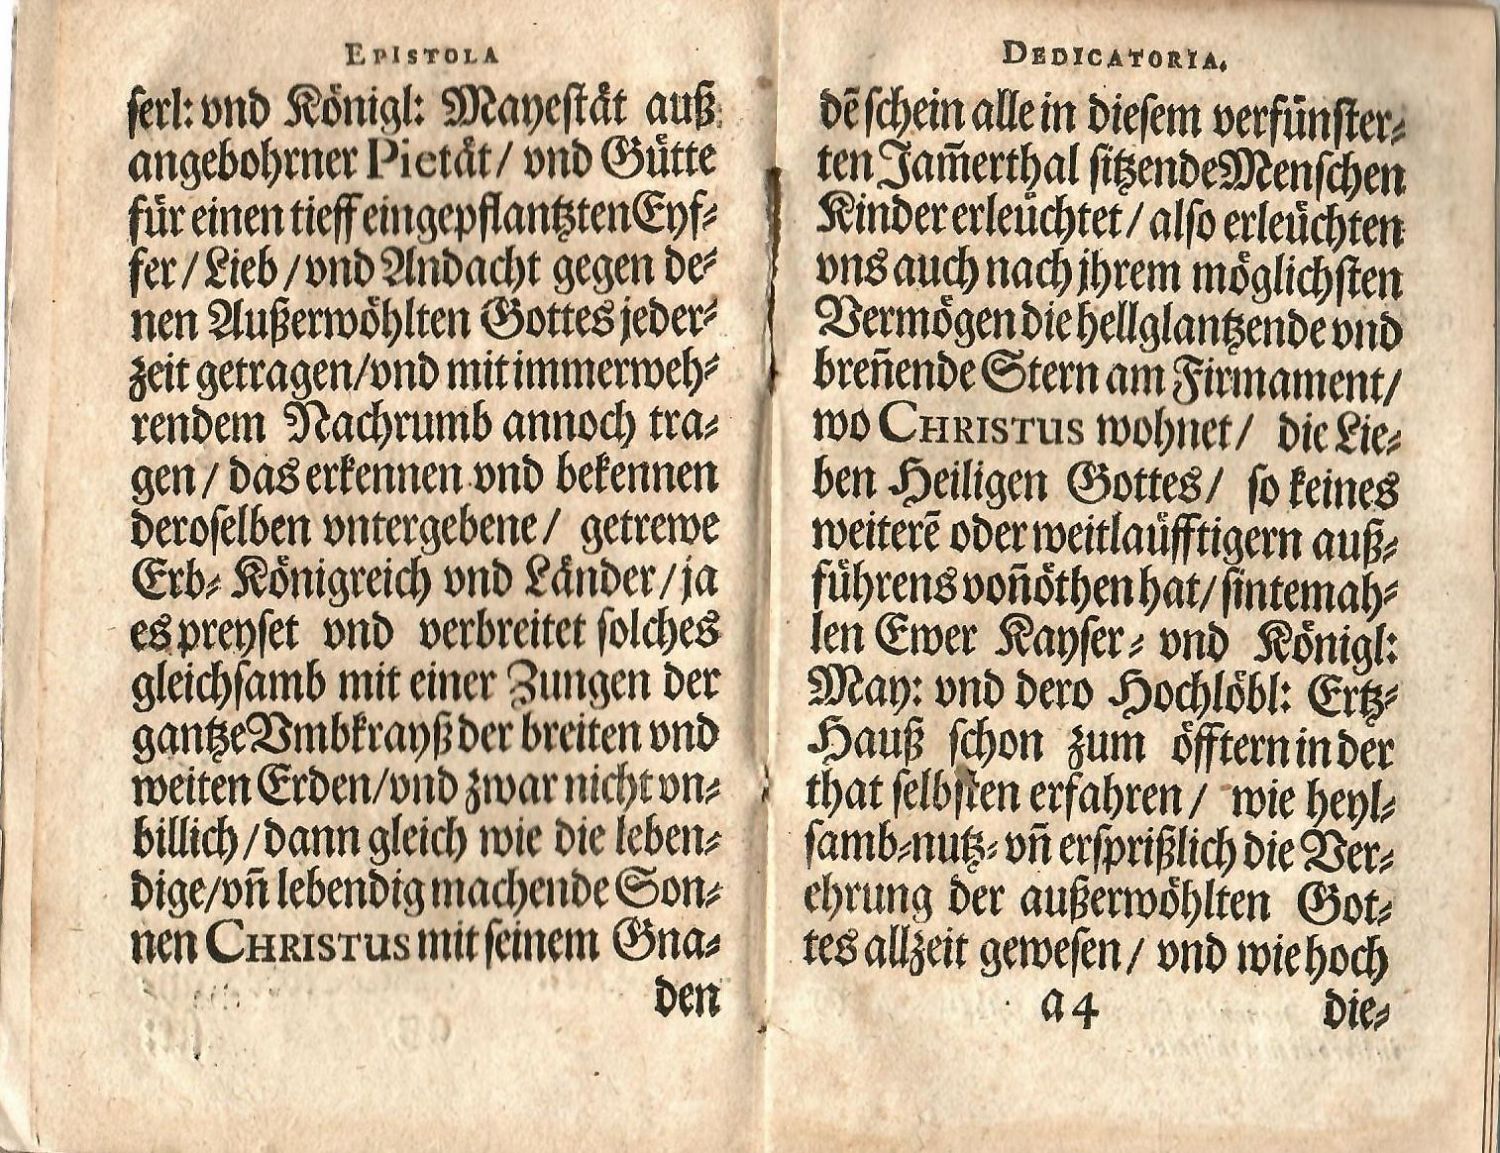 EPISTOLA
ſerl: vnd Königl: Mayeſtät auß
angebohrner Pietät/ vnd Gütte
für einen tieff eingepflantzten Eyf⸗
fer / Lieb / vnd Andacht gegen de⸗
nen Außerwöhlten Gottes jeder⸗
zeit getragen/vnd mit immerweh⸗
rendem Nachrumb annoch tra⸗
gen / das erkennen vnd bekennen
deroſelben vntergebene/ getrewe
Erb⸗ Königreich vnd Länder / ja
es preyſet vnd verbreitet ſolches
gleichſamb mit einer Zungen der
gantze Vmbkrayß der breiten vnd
weiten Erden/vnd zwar nicht vn⸗
billich / dann gleich wie die leben⸗
dige/vn̄ lebendig machende Son⸗
nen CHRISTUS mit ſeinem Gna⸗
den
DEDICATORIA.
dē ſchein alle in dieſem verfünſter⸗
ten Jam̄erthal ſitzende Menſchen
Kinder erleüchtet / alſo erleüchten
vns auch nach jhrem möglichſten
Vermögen die hellglantzende vnd
bren̄ende Stern am Firmament/
wo CHRISTUS wohnet/ die Lie⸗
ben Heiligen Gottes/ ſo keines
weiterē oder weitlaüfftigern auß⸗
führens von̄öthen hat/ ſintemah⸗
len Ewer Kayſer⸗ vnd Königl:
May: vnd dero Hochlöbl: Ertz⸗
Hauß ſchon zum öfftern in der
that ſelbſten erfahren / wie heyl⸗
ſamb⸗nutz⸗ vn̄ erſprißlich die Ver⸗
ehrung der außerwöhlten Got⸗
tes allzeit geweſen / vnd wie hoch
a 4 die⸗